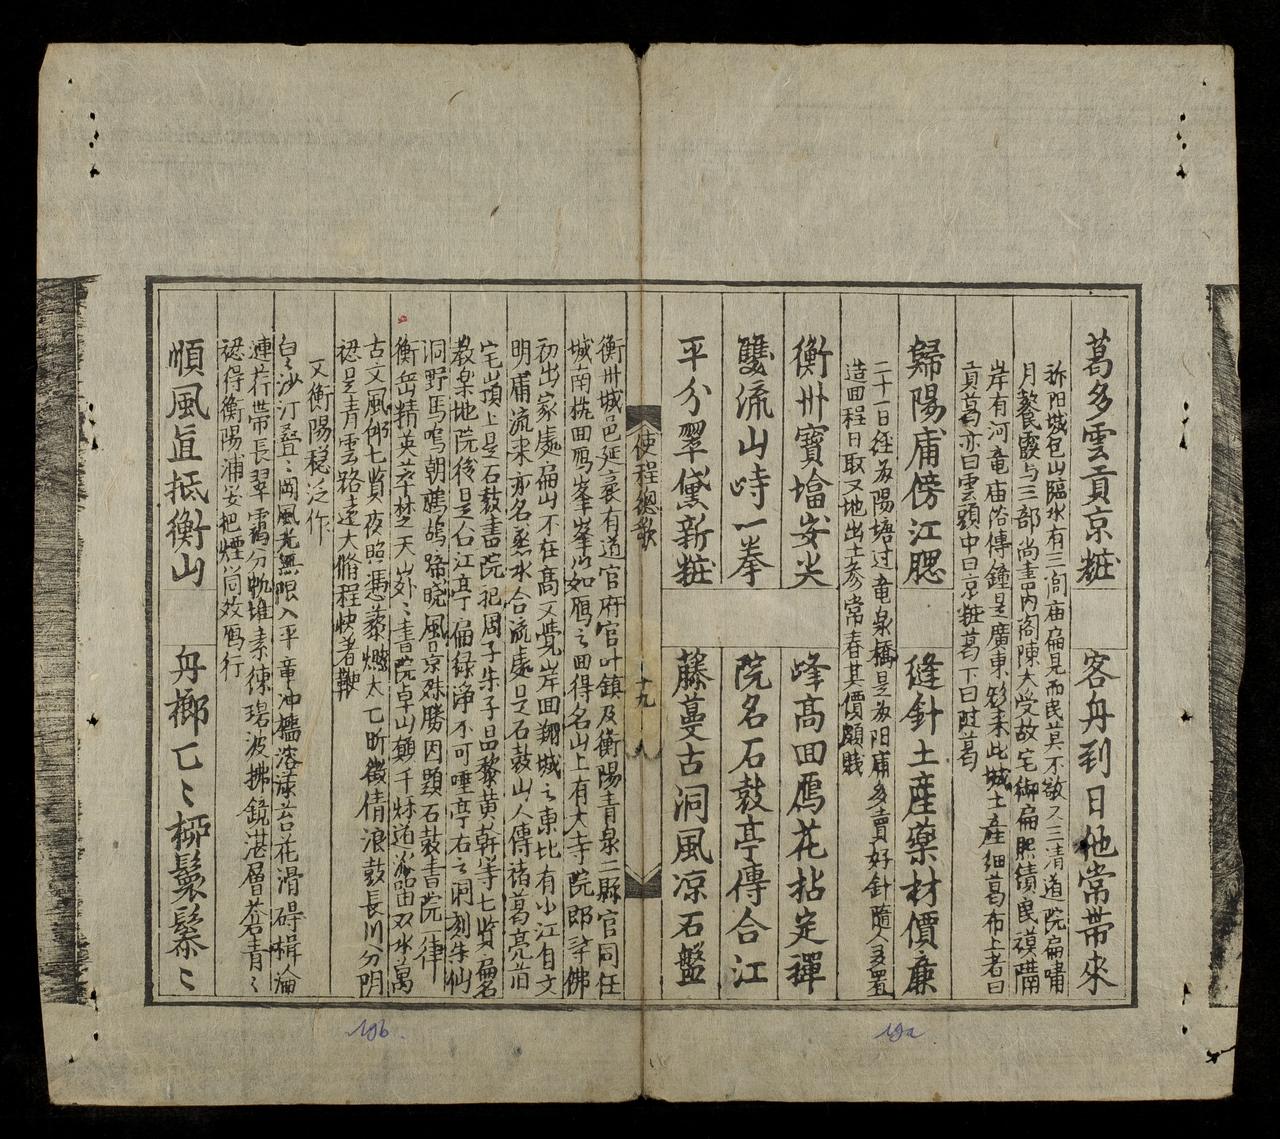 葛多雲貢京粧　客舟到日他常帶來
祈阳城包山臨水有三閭庙扁見而民莫不敬又三清道院扁嘯
月餐霞与三部尚書内阁陳大受故宅御扁熙績民謨購
岸有河竜庙俗傳鐘是廣東移来此城土産細葛布上者曰
貢葛亦曰雲頭中曰京粧葛下曰肚葛
歸陽甫傍江腮　縫針土産藥材價廉
二十一日经歸陽塘过竜泉橋是歸阳甫多賣好針隨人多置
造回程日取又地出土参常春其價頗賎
衡卅寶墖安尖　峰高回鴈花拈定禪
雙流山峙一拳　院名石鼓亭傳合江
平分翠黛新粧　藤蔓古洞風凉石盤
使程總歌
十九
衡卅城邑延袤有道官府官叶鎮及衡陽青泉二縣官同任
城南挽回鴈峯峯以如鴈之回得名山上有大寺院郎辛佛
初出家處扁山不在高又覺岸回翔城之東北有小江自文
明甫流来亦名蒸水合流處是石鼓山人傳禇葛亮前
宅山頂上是石鼓書院祀周子朱子昌黎黄幹等七賢扁名
教楽地院後是合江亭扁緑浄不可唾亭右之洞刻朱仙
洞野馬鳴朝鷓鴣蹄晓風景殊勝因題石鼓書院一律
衡岳精英萃林之天山外之書院卓山巔千秌道派留双水萬
古文風仰七賢夜照馮藜燃太乙昕徵倩浪鼓長川分明
認是青雲路逹大脩程快着鞭
又衡陽穏泛作
白〻沙汀叠〻岡風光無限入平章冲檣漾漾苔花滑碍楫淪
連荇帯長翠靄分帆堆素練碧波拂鏡湛層蒼青〻
認得衡陽浦安把煙筒效鴈行
順風直抵衡山　舟榔乙〻柳鬟鬖〻
19b.
19a